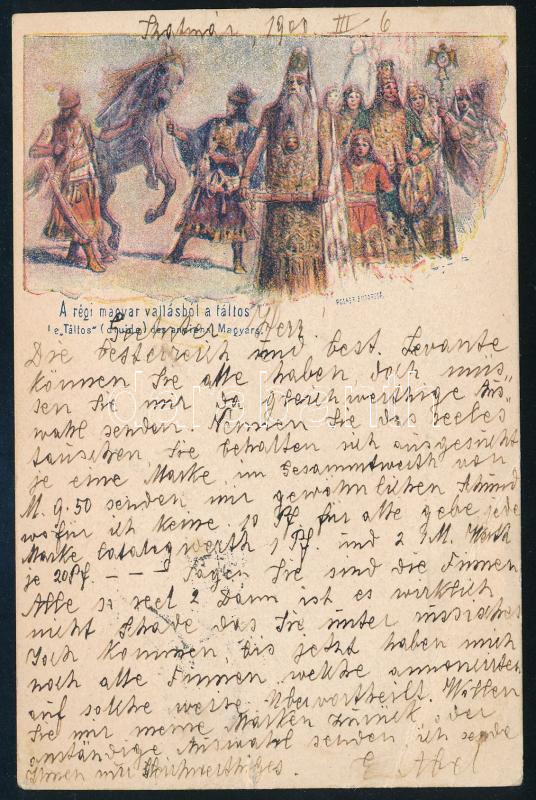 Szatmár, 1900 III 6
A régi magyar vallásból a táltos
le „Táltos“ (druide) des anciens Magyars.
Geehrter Herz
Die Oesterreich und best. Levante
können Sie alle haben doch müs-
sen Sie mir da gleichwerthige Aus-
wahl senden. Nennen Sie das reeles
tauschen Sie behalten sich ausgesucht
je eine Marke im Gesammtwerth von
M. 9.50 senden mir gewöhnlichen Schund
wofür ich keine 10 Pf für alle gebe jede
Marke Catalogwerth 1 Pf. und 2 M.
je 20 Pf. — — Sagen Sie sind die Firmen
Alle so reel? Dann ist es wirklich
nicht Schade das Sie unter russisches
Joch kommen, bis jetzt haben mich
noch alle Firmen welche annoncirten
auf solche weise Übervortheilt. Wollen
Sie mir meine Marken zurück oder
anständige Auswahl senden ich sende
Ihnen nur Gleichwerthiges. E. Abel